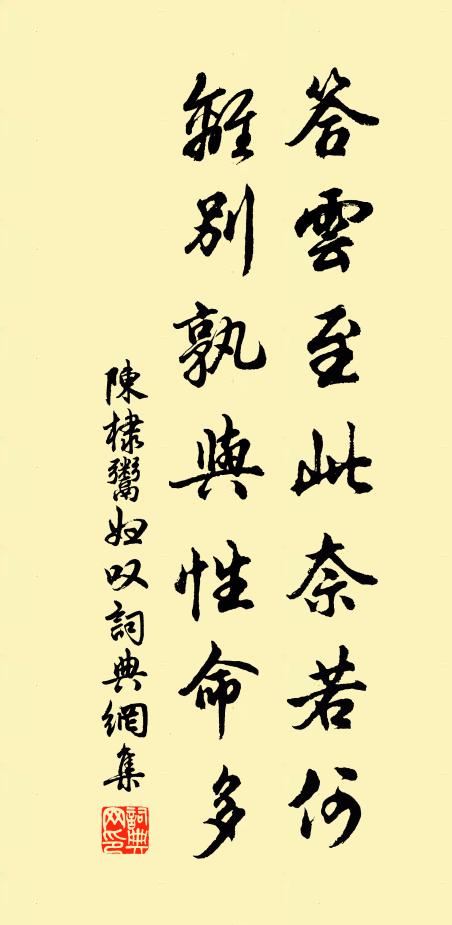 答雲至此奈若何
離別孰與性命多
陳棣鬻婦叹詞典網集
詞典網印